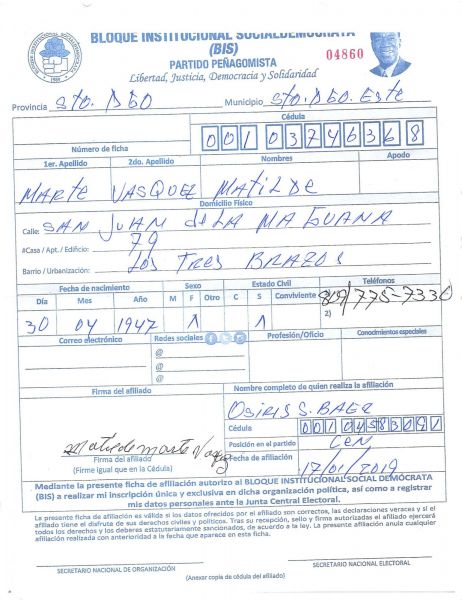 BLOQUE INSTITUCIONAL SOCIALDEMÓCRATA
(BIS)
PARTIDO PEÑAGOMISTA
04860
Libertad, Justicia, Democracia y Solidaridad
Provincia Sto. Dgo Municipio Sto. Dgo. Este
Cédula
Número de ficha 001 0374636 8
1er. Apellido 2do. Apellido Nombres Apodo
Marte Vasquez Matilde
Domicilio Físico
Calle: San Juan de La Maguana
#Casa / Apt. / Edificio: 79
Barrio / Urbanización: Los Tres Brazos
Fecha de nacimiento Sexo Estado Civil Teléfonos
Día Mes Año M F Otro C S Conviviente 809/775-7330
30 04 1947 1 1 2)
Correo electrónico Redes sociales Profesión/Oficio Conocimientos especiales
@
@
@
Firma del afiliado Nombre completo de quien realiza la afiliación
Osiris S. Baez
Cédula 001 0458309 1
Posición en el partido CEN
Matilde Marte Vasquez
Firma del afiliado Fecha de afiliación 17/01/2019
(Firme igual que en la Cédula)
Mediante la presente ficha de afiliación autorizo al BLOQUE INSTITUCIONAL SOCIAL DEMÓCRATA
(BIS) a realizar mi inscripción única y exclusiva en dicha organización política, así como a registrar
mis datos personales ante la Junta Central Electoral.
La presente ficha de afiliación es válida si los datos ofrecidos por el afiliado son correctos, las declaraciones veraces y si el
afiliado tiene el disfrute de sus derechos civiles y políticos. Tras su recepción, sello y firma autorizadas el afiliado ejercerá
todos los derechos y los deberes estatutariamente sancionados, de acuerdo a la ley. La presente afiliación anula cualquier
afiliación realizada con anterioridad a la fecha que aparece en esta ficha.
SECRETARIO NACIONAL DE ORGANIZACIÓN SECRETARIO NACIONAL ELECTORAL
(Anexar copia de cédula del afiliado)